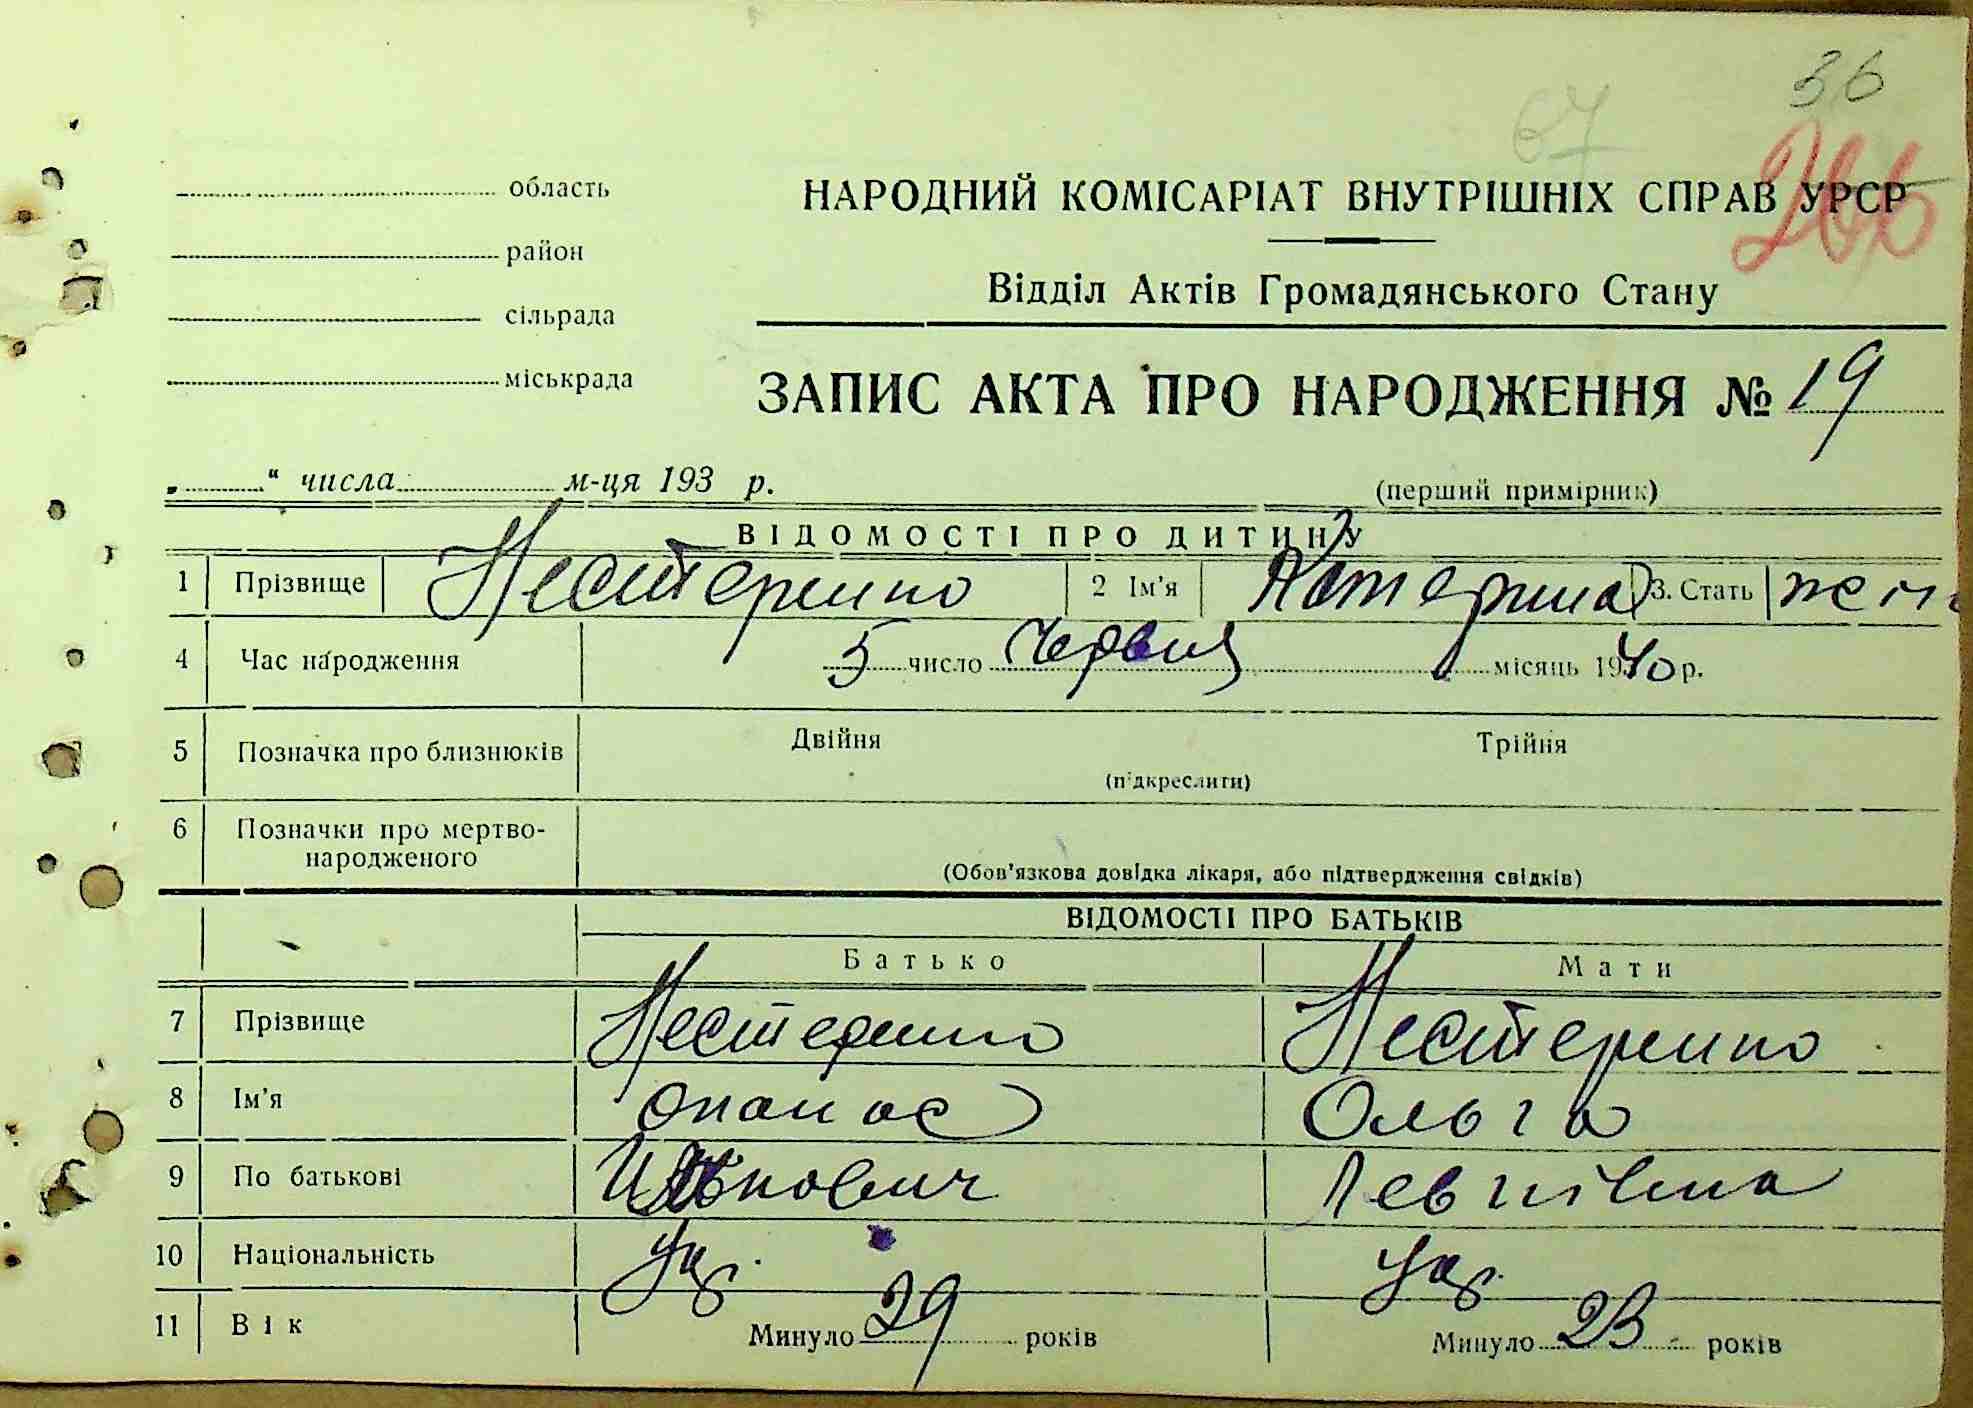 36
67
266
область
район
сільрада
міськрада
НАРОДНИЙ КОМІСАРІАТ ВНУТРІШНІХ СПРАВ УРСР
Відділ Актів Громадянського Стану
ЗАПИС АКТА ПРО НАРОДЖЕННЯ № 19
„ “ числа м-ця 193 р.
(перший примірник)
ВІДОМОСТІ ПРО ДИТИНУ
1 Прізвище Нестеренко 2 Ім'я Катерина 3. Стать жен
4 Час народження 5 число Червня місяць 1940 р.
5 Позначка про близнюків Двійня Трійня
(підкреслити)
6 Позначки про мертво-
народженого
(Обов'язкова довідка лікаря, або підтвердження свідків)
ВІДОМОСТІ ПРО БАТЬКІВ
Батько Мати
7 Прізвище Нестеренко Нестеренко
8 Ім'я Опанас Ольга
9 По батькові Ількович
10 Національність Укр. Укр.
11 Вік Минуло 29 років Минуло 23 років